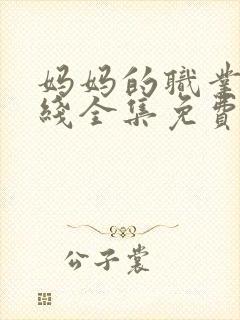 妈妈的職業
綫全集免費
公子裳